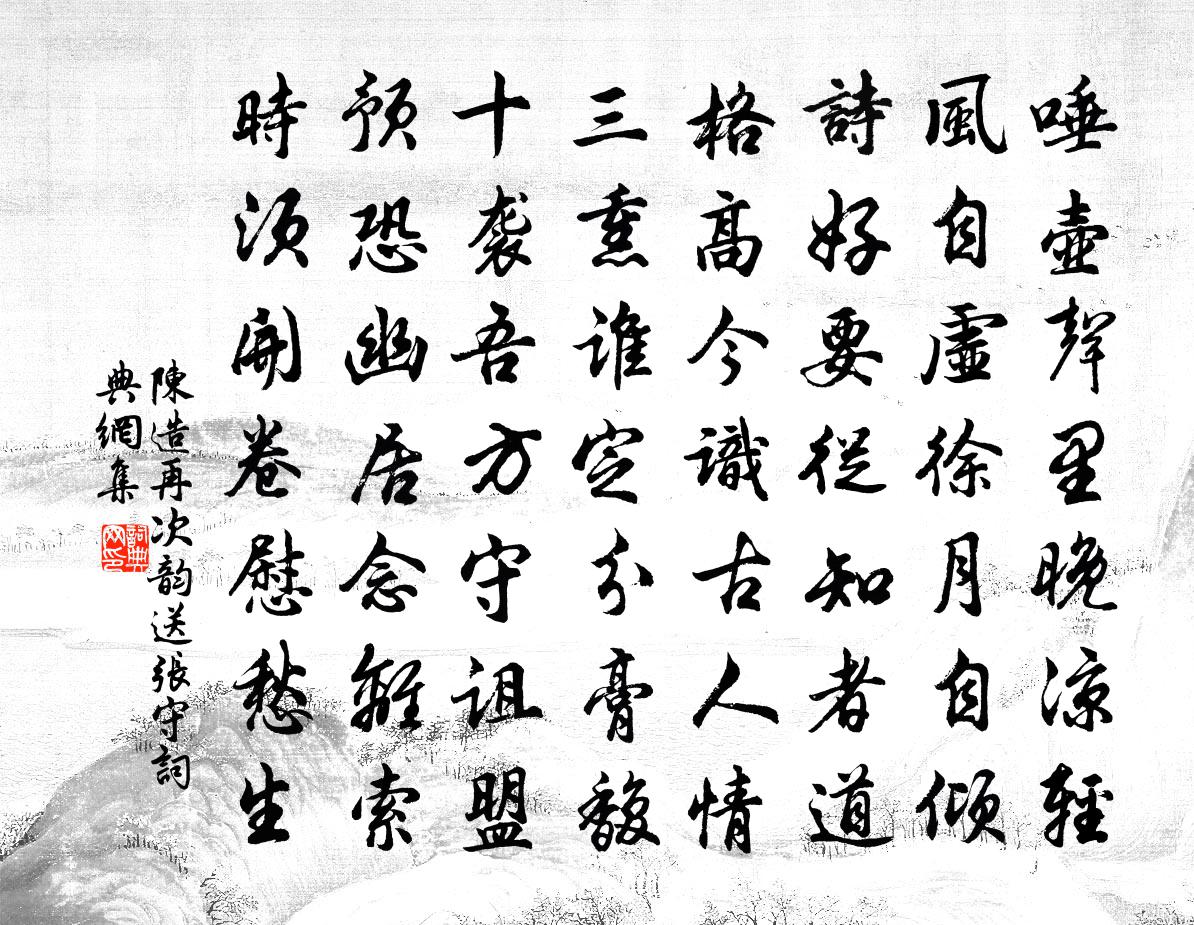 唾壺聲里晚涼輕
風自虛徐月自傾
詩好要從知者道
格高今識古人情
三熏誰定分膏馥
十袭吾方守詛盟
預恐幽居念離索
時須開卷慰愁生
陳造再次韵送張守詞
典網集
詞典
网印